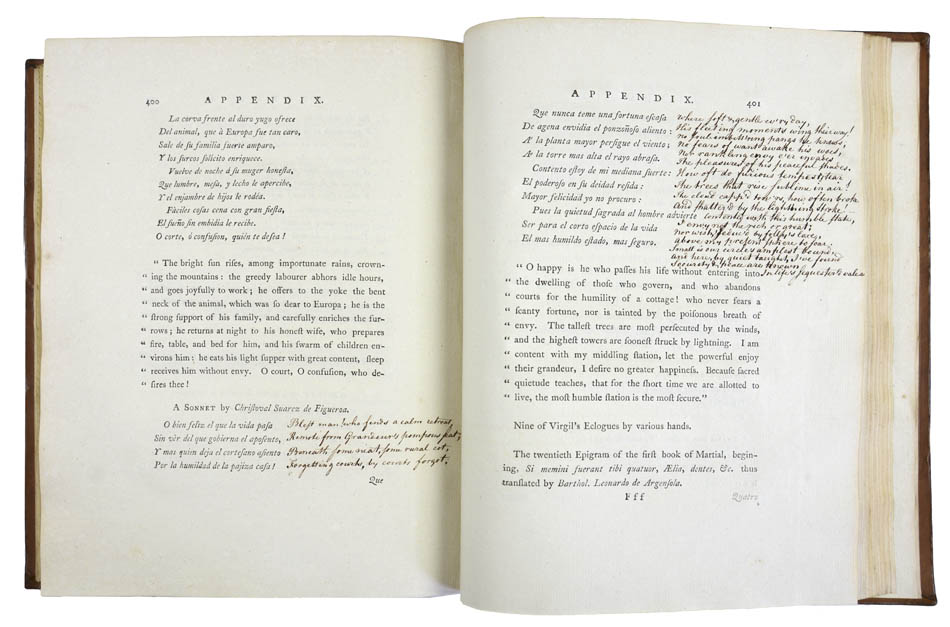 400 APPENDIX.
La corva frente al duro yugo ofrece
Del animal, que à Europa fue tan caro,
Sale de ſu familia fuerte amparo,
Y los ſurcos ſolicito enriquece.
Vuelve de noche à ſu muger honeſta,
Que lumbre, meſa, y lecho le apercibe,
Y el enjambre de hijos le rodéa.
Fàciles coſas cena con gran fieſta,
El ſueño ſin embidia le recibe.
O corte, ò confuſion, quièn te deſea!
“ The bright ſun riſes, among importunate rains, crown-
ing the mountains: the greedy labourer abhors idle hours,
“ and goes joyfully to work; he offers to the yoke the bent
“ neck of the animal, which was ſo dear to Europa; he is the
“ ſtrong ſupport of his family, and carefully enriches the fur-
“ rows; he returns at night to his honeſt wife, who prepares
“ fire, table, and bed for him, and his ſwarm of children en-
“ virons him: he eats his light ſupper with great content, ſleep
“ receives him without envy. O court, O confuſion, who de-
“ ſires thee!
A SONNET by Chriſtoval Suarez de Figueroa.
O bien feliz el que la vida paſa
Sin vèr del que gobierna el apoſento,
Y mas quien deja el corteſano aſiento
Por la humildad de la pajiza caſa!
Bleſt man! who finds a calm retreat,
Remote from Grandeur's pompous ſeat;
Beneath ſome neat, ſome rural cot;
Forgetting courts, by courts forgot.
Que
APPENDIX. 401
Que nunca teme una fortuna eſcaſa
De agena envidia el ponzoñoſo aliento:
A la planta mayor perſigue el viento;
A la torre mas alta el rayo abraſa.
Contento eſtoy de mi mediana ſuerte:
El poderoſo en ſu deidad reſida:
Mayor felicidad yo no procuro:
Pues la quietud ſagrada al hombre advierte
Ser para el corto eſpacio de la vida
El mas humilde eſtado, mas ſeguro.
Where ſoft & gentle ev'ry day,
His fleeting moments wing their way!
No pangs he knows,
No fears of want awake his woes,
Nor rankling envy e'er invades
The pleaſures of his peaceful ſhades.
How oft do furious tempeſts tear
The trees that riſe ſublime in air!
The cloud capp'd tow'rs, how often broke
And ſhatter'd by the lightning ſtroke!
Contented with this humble ſtate,
I envy not the rich or great;
Nor wiſh, ſeduc'd by folly's
above my preſent ſphere to ſoar.
Small is my circle's ampleſt bound,
And here, by quiet taught, I've found
Security & peace are known
In life's ſequeſter'd vale
“ O happy is he who paſſes his life without entering into
“ the dwelling of thoſe who govern, and who abandons
“ courts for the humility of a cottage! who never fears a
“ ſcanty fortune, nor is tainted by the poiſonous breath of
“ envy. The talleſt trees are moſt perſecuted by the winds,
“ and the higheſt towers are ſooneſt ſtruck by lightning. I am
“ content with my middling ſtation, let the powerful enjoy
“ their grandeur, I deſire no greater happineſs. Becauſe ſacred
“ quietude teaches, that for the ſhort time we are allotted to
“ live, the moſt humble ſtation is the moſt ſecure.”
Nine of Virgil's Eclogues by various hands.
The twentieth Epigram of the firſt book of Martial, begin-
ning, Si memini fuerant tibi quatuor, Ælia, dentes, &c. thus
tranſlated by Barthol. Leonardo de Argenſola.
F f f Quatro